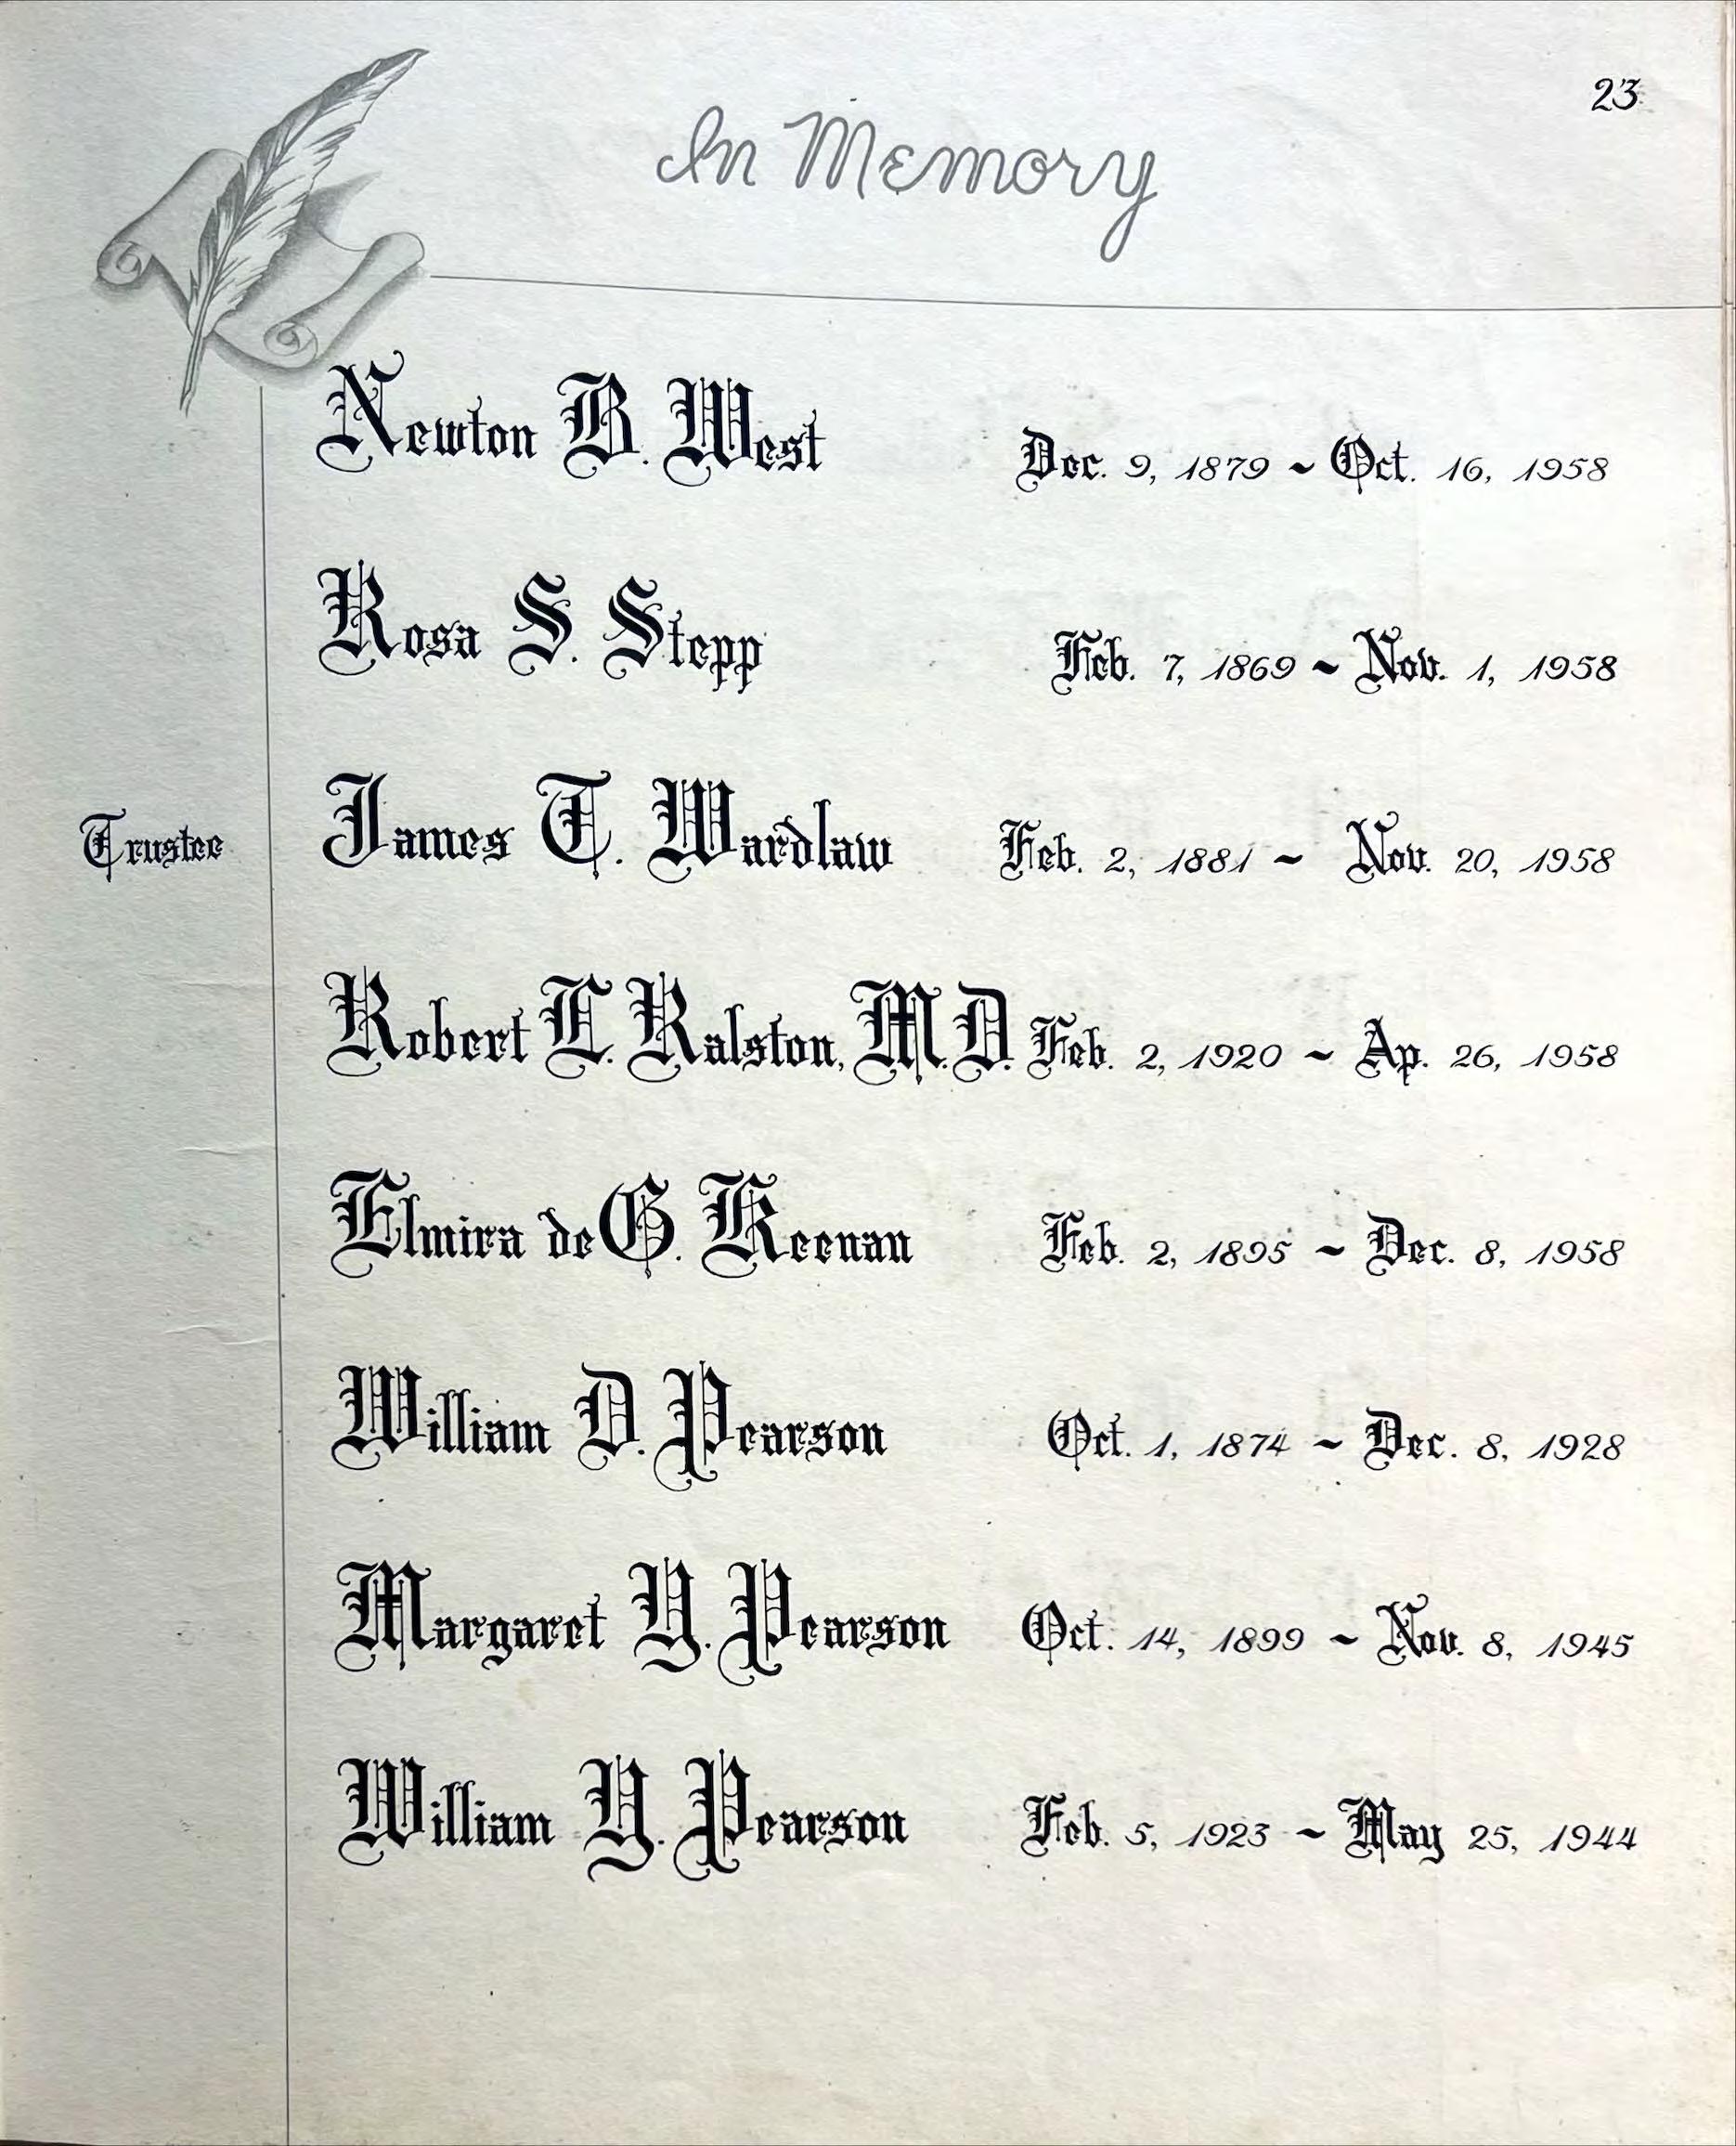 23
In Memory
Newton B. West Dec. 9, 1879 ~ Oct. 16, 1958
Rosa S. Stepp Feb. 7, 1869 ~ Nov. 1, 1958
Trustee James T. Wardlaw Feb. 2, 1881 ~ Nov. 20, 1958
Robert L. Ralston, M.D. Feb. 2, 1920 ~ Ap. 26, 1958
Elmira de G. Keenan Feb. 2, 1895 ~ Dec. 8, 1958
William D. Pearson Oct. 1, 1874 ~ Dec. 8, 1928
Margaret Y. Pearson Oct. 14, 1899 ~ Nov. 8, 1945
William Y. Pearson Feb. 5, 1923 ~ May 25, 1944